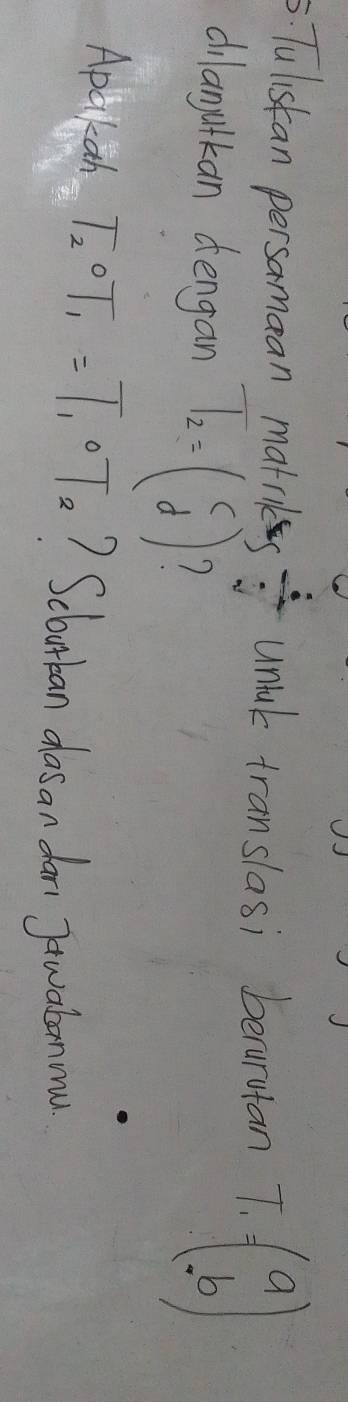 5. Tuliskan persamaan matriks untuk translasi berurutan T₁ = (a b)
dilanjutkan dengan T₂ = (c d)?
Apakah T₂ o T₁ = T₁ o T₂? Sebutkan dasan dari Jawabanmu.